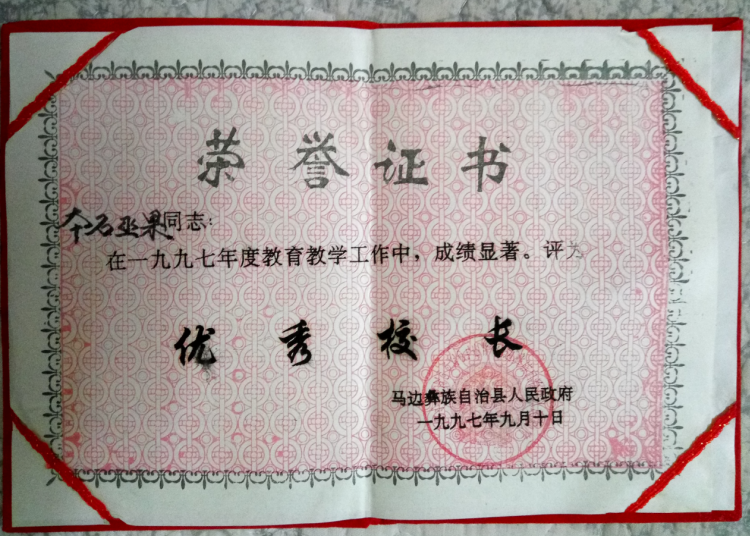 荣誉证书
石亚果同志：
在一九九七年度教育教学工作中，成绩显著。评为
优秀校长
马边彝族自治县人民政府
一九九七年九月十日